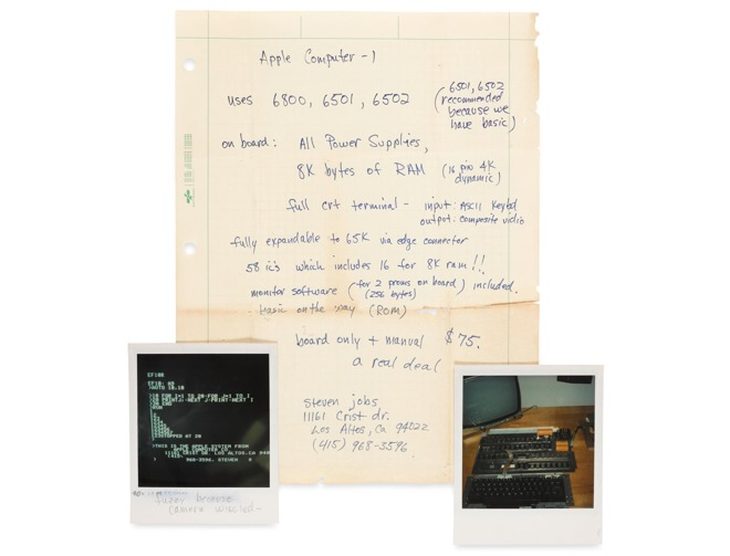 Apple Computer -1
uses 6800, 6501, 6502 (6501, 6502
recommended
because we
have basic)
on board: All Power Supplies,
8K bytes of RAM (16 pin 4K
dynamic)
full crt terminal - input: ASCII Keybd
output: composite vidio
fully expandable to 65K via edge connector
58 ic's which includes 16 for 8K ram!!
monitor software (for 2 proms on board) included.
(256 bytes)
basic on the way (ROM)
board only + manual $75.
a real deal
steven jobs
11161 Crist dr.
Los Altos, Ca 94022
(415) 968-3596.
>THIS IS THE APPLE SYSTEM FROM
APPLE COMPUTER CO
11161 CRIST DR. LOS ALTOS,CA
968-3596, STEVEN
fuzzy because
camera wiggled-